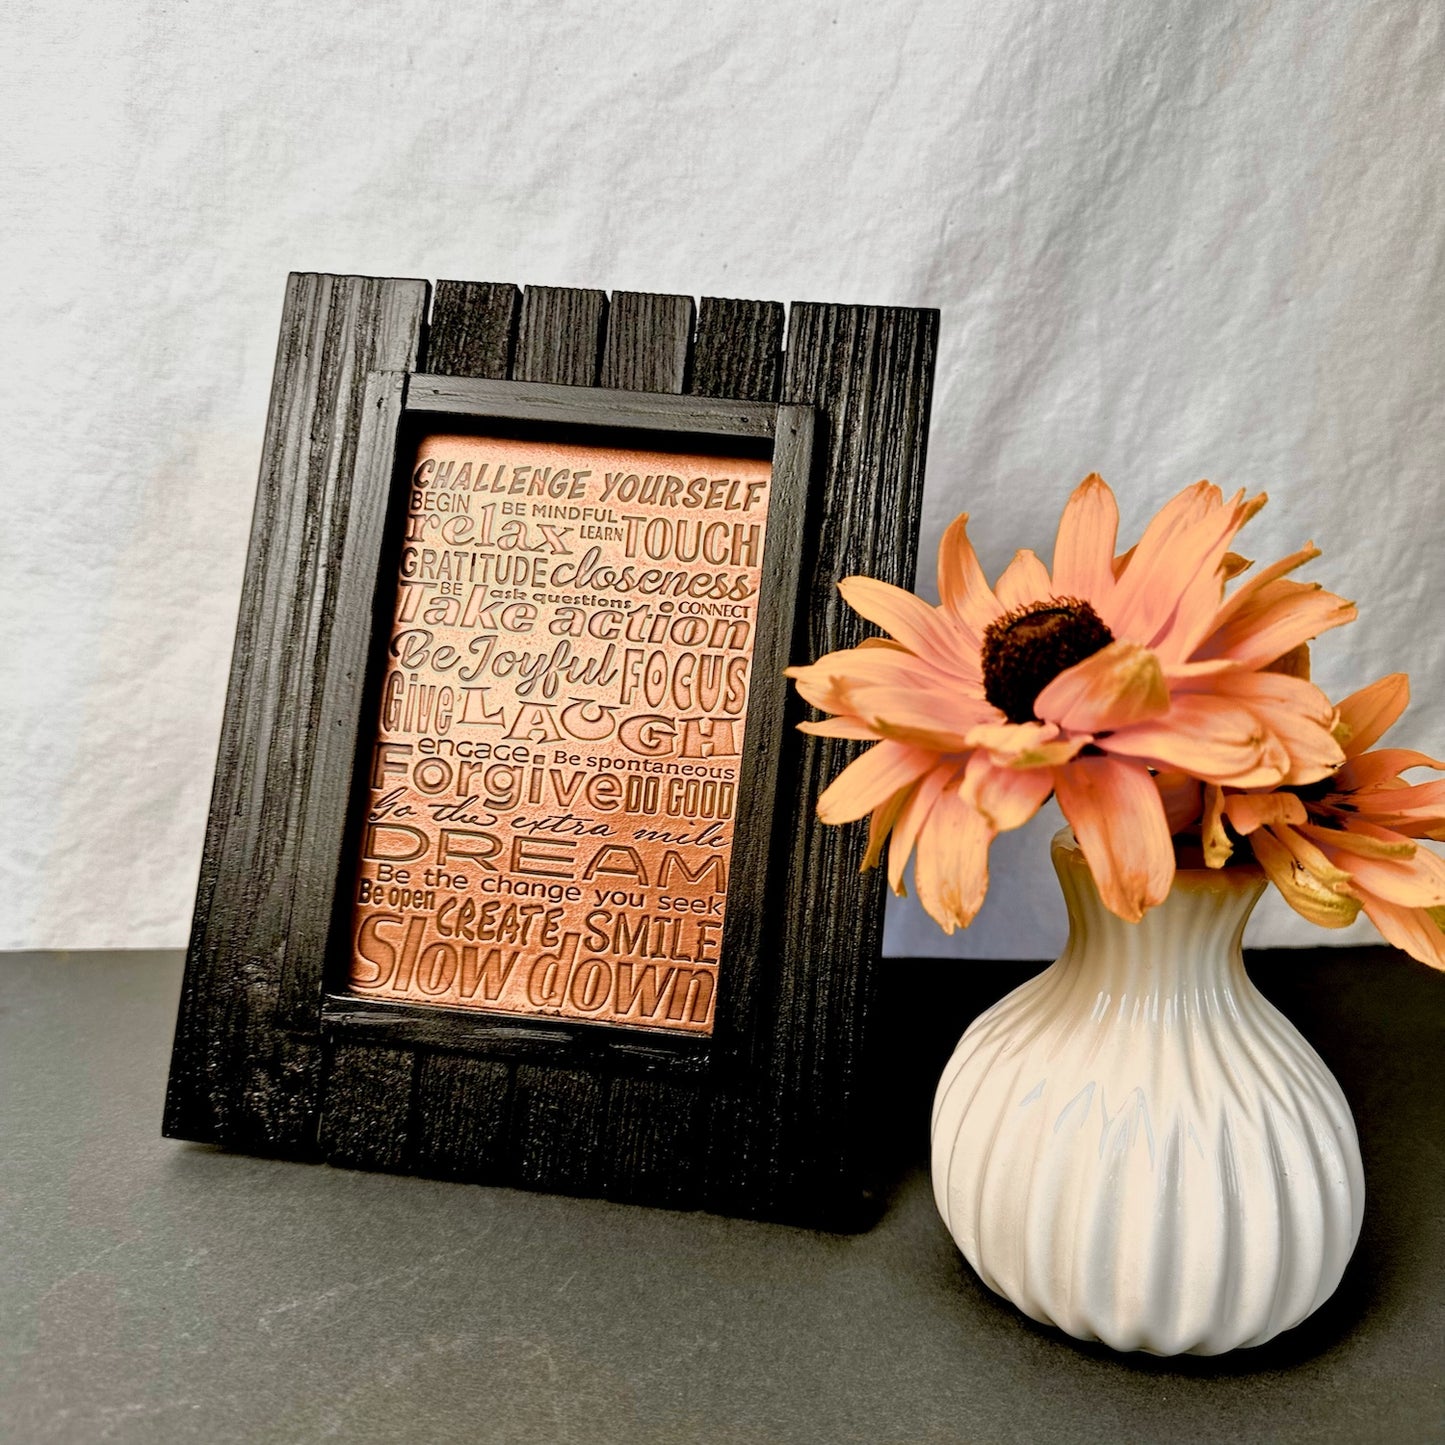 CHALLENGE YOURSELF
BEGIN BE MINDFUL
relax LEARN TOUCH
GRATITUDE closeness
BE ask questions CONNECT
Take action
Be Joyful FOCUS
Give LAUGH
engage Be spontaneous
Forgive DO GOOD
Go the extra mile
DREAM
Be the change you seek
Be open CREATE SMILE
Slow down